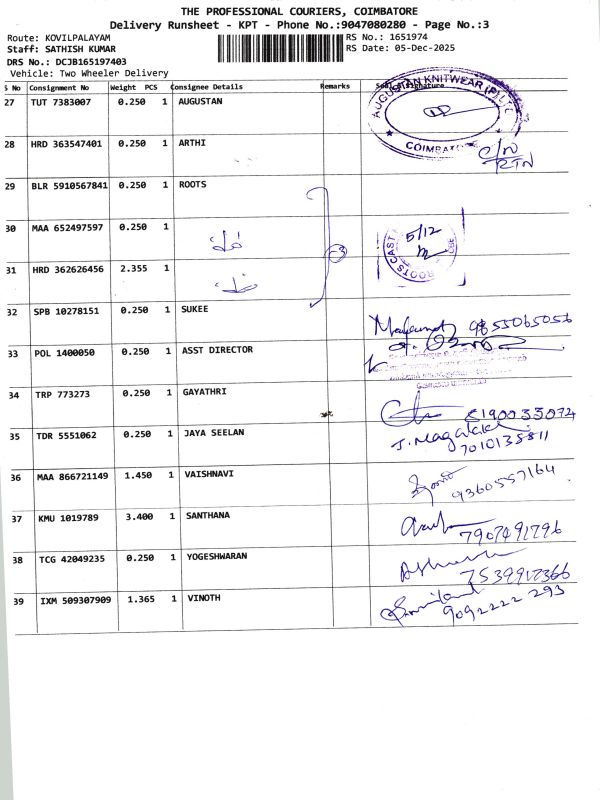 THE PROFESSIONAL COURIERS, COIMBATORE
Delivery Runsheet - KPT - Phone No.:9047080280 - Page No.:3
Route: KOVILPALAYAM RS No.: 1651974
Staff: SATHISH KUMAR RS Date: 05-Dec-2025
DRS No.: DCJB165197403
Vehicle: Two Wheeler Delivery
S No Consignment No Weight PCS Consignee Details Remarks
27 TUT 7383007 0.250 1 AUGUSTAN
AUGUSTAN KNITWEAR (P) LTD
COIMBATORE
28 HRD 363547401 0.250 1 ARTHI C/N
RTN
29 BLR 5910567841 0.250 1 ROOTS
30 MAA 652497597 0.250 1
ROOTS CAST
5/12
3
31 HRD 362626456 2.355 1
32 SPB 10278151 0.250 1 SUKEE 9655065056
33 POL 1400050 0.250 1 ASST DIRECTOR
34 TRP 773273 0.250 1 GAYATHRI 8190033074
35 TDR 5551062 0.250 1 JAYA SEELAN J. Nagalakshmi
7010135811
36 MAA 866721149 1.450 1 VAISHNAVI
9360557164
37 KMU 1019789 3.400 1 SANTHANA
7907491796
38 TCG 42049235 0.250 1 YOGESHWARAN
7539912366
39 IXM 509307909 1.365 1 VINOTH
9092222 293